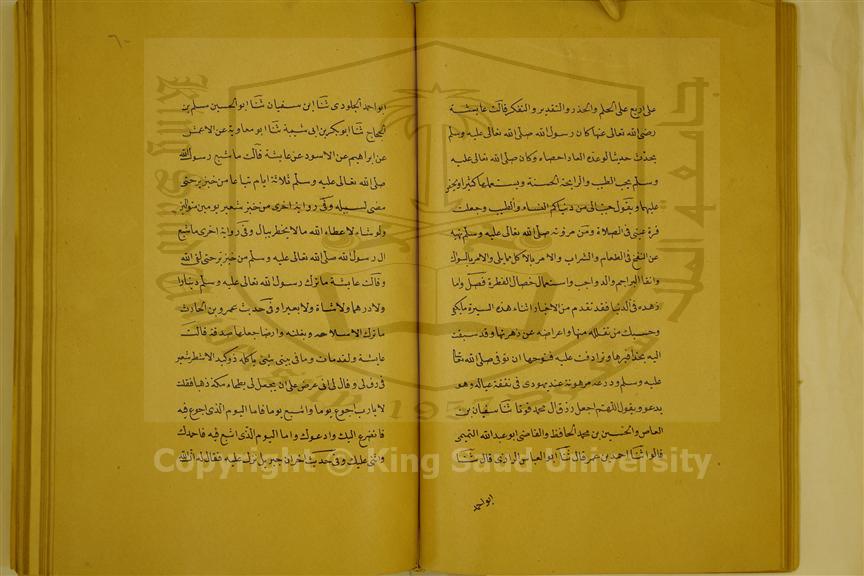 على اربع على الحلم والحذر والتقدير والتفكر قالت عايشة
رضى الله تعالى عنها كان رسول الله صلى الله تعالى عليه وسلم
يحدث حديثا لو عده العاد احصاه وكان صلى الله تعالى عليه
وسلم يحب الطيب والرايحة الحسنة ويستعملها كثيرا ويحض
عليهما ويقول حبب الى من دنياكم النساء والطيب وجعلت
قرة عينى فى الصلاة ومن مروته صلى الله تعالى عليه وسلم نهيه
عن النفخ فى الطعام والشراب والامر بالاكل مما يلى والامر بالسواك
وانقا البراجم والرواجب واستعمال خصال الفطرة فصل واما
زهده فى الدنيا فقد تقدم من الاخبار اثناء هذه السيرة ما يكفى
وحسبك من تقلله منها واعراضه عن زهرتها وقد سيقت
اليه بحذافيرها وترادفت عليه فتوحها ان توفى صلى الله تعالى
عليه وسلم ودرعه مرهونة عند يهودى فى نفقة عياله وهو
يدعو ويقول اللهم اجعل رزق ال محمد قوتا ثنا سفيان بن
العاص والحسين بن محمد الحافظ والقاضى ابو عبد الله التميمى
قالوا ثنا احمد بن عمر قال ثنا ابو العباس الرازى قال ثنا
ابو احمد
٦٠
ابو احمد الجلودى ثنا ابن سفيان ثنا ابو الحسين مسلم بن
الحجاج ثنا ابو بكر بن ابى شيبة ثنا ابو معاوية عن الاعمش
عن ابراهيم عن الاسود عن عايشة قالت ما شبع رسول الله
صلى الله تعالى عليه وسلم ثلاثة ايام تباعا من خبز بر حتى
مضى لسبيله وفى رواية اخرى من خبز شعير يومين متواليين
ولو شاء لاعطاه الله ما لا يخطر ببال وفى رواية اخرى ما شبع
ال رسول الله صلى الله تعالى عليه وسلم من خبز بر حتى لقى الله
وقالت عايشة ما ترك رسول الله تعالى عليه وسلم دينارا
ولا درهما ولا شاة ولا بعيرا وفى حديث عمرو بن الحارث
ما ترك الا سلاحه وبغلته وارضا جعلها صدقة قالت
عايشة ولقد مات وما فى بيتى شئ ياكله ذو كبد الا شطر شعير
فى رف لى وقال لى انى عرض على ان يجعل لى بطحاء مكة ذهبا فقلت
لا يا رب اجوع يوما واشبع يوما فاما اليوم الذى اجوع فيه
فاتضرع اليك وادعوك واما اليوم الذى اشبع فيه فاحمدك
واثنى عليك وفى حديث اخر ان جبريل نزل عليه فقال له ان الله
جامعة الملك سعود
King Saud University
1957
Copyright © King Saud University